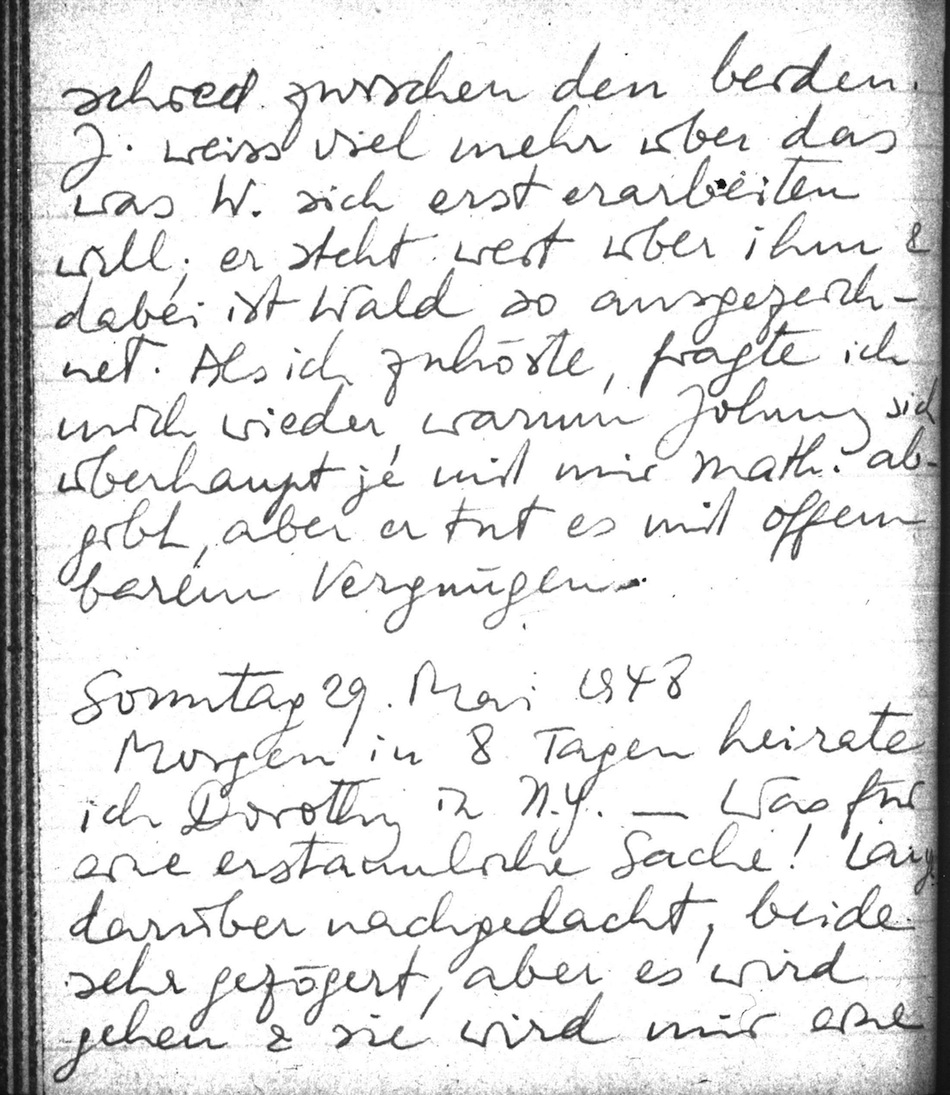 schied zwischen den beiden.
J. weiss viel mehr über das
was W. sich erst erarbeiten
will; er steht weit über ihm &
dabei ist Wald so ausgezeich-
net. Als ich zuhörte, fragte ich
mich wieder, warum Johnny sich
überhaupt je mit mir math. ab-
gibt, aber er tut es mit offen-
barem Vergnügen.
Sonntag 29. Mai 1948
Morgen in 8 Tagen heirate
ich Dorothy in N.Y. — Was für
eine erstaunliche Sache! Lang
darüber nachgedacht, beide
sehr gezögert, aber es wird
gehen & sie wird mir eine